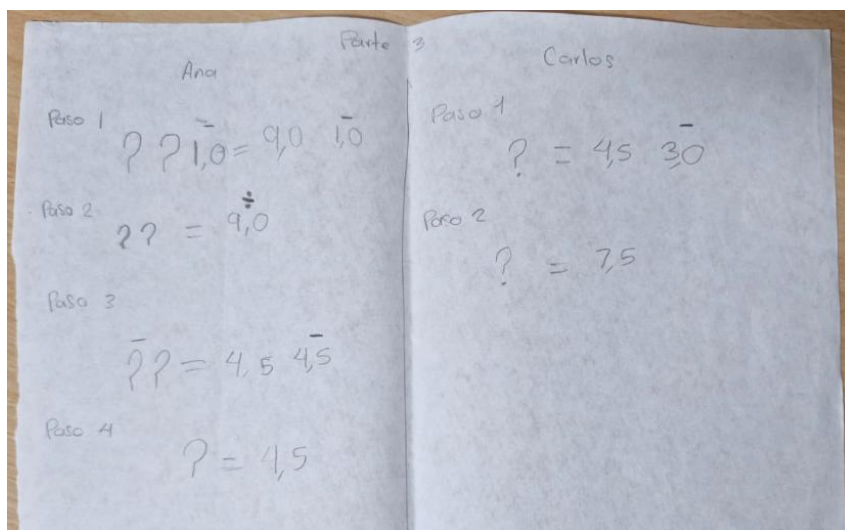 Parte 3
Ana
Paso 1
? ? 1,0 = 9,0 1,0
Paso 2
? ? = 9,0
÷
Paso 3
? ? = 4,5 4,5
Paso 4
? = 4,5
Carlos
Paso 1
? = 4,5 3,0
Paso 2
? = 7,5